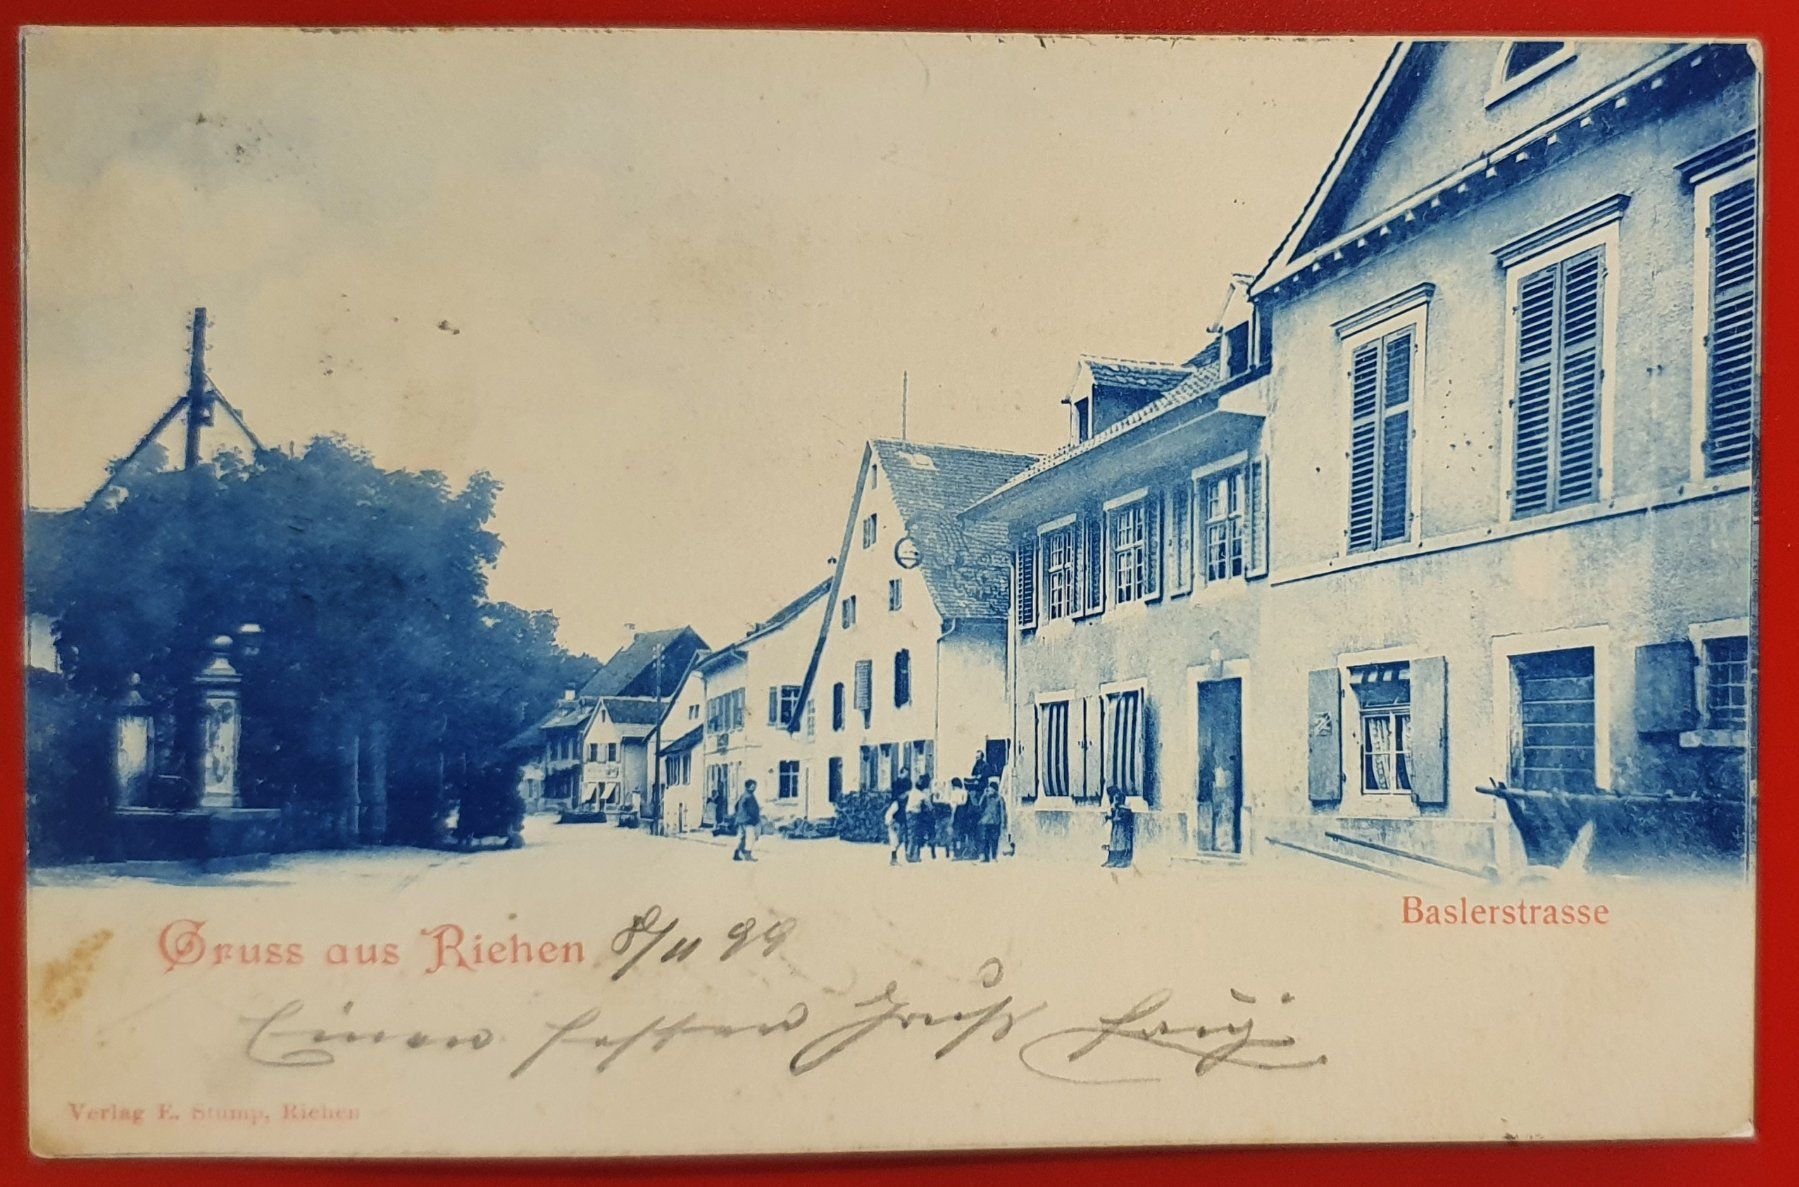 Baslerstrasse
Gruss aus Riehen 8/11 99
Einen festen Gruß
Verlag E. Stump, Riehen